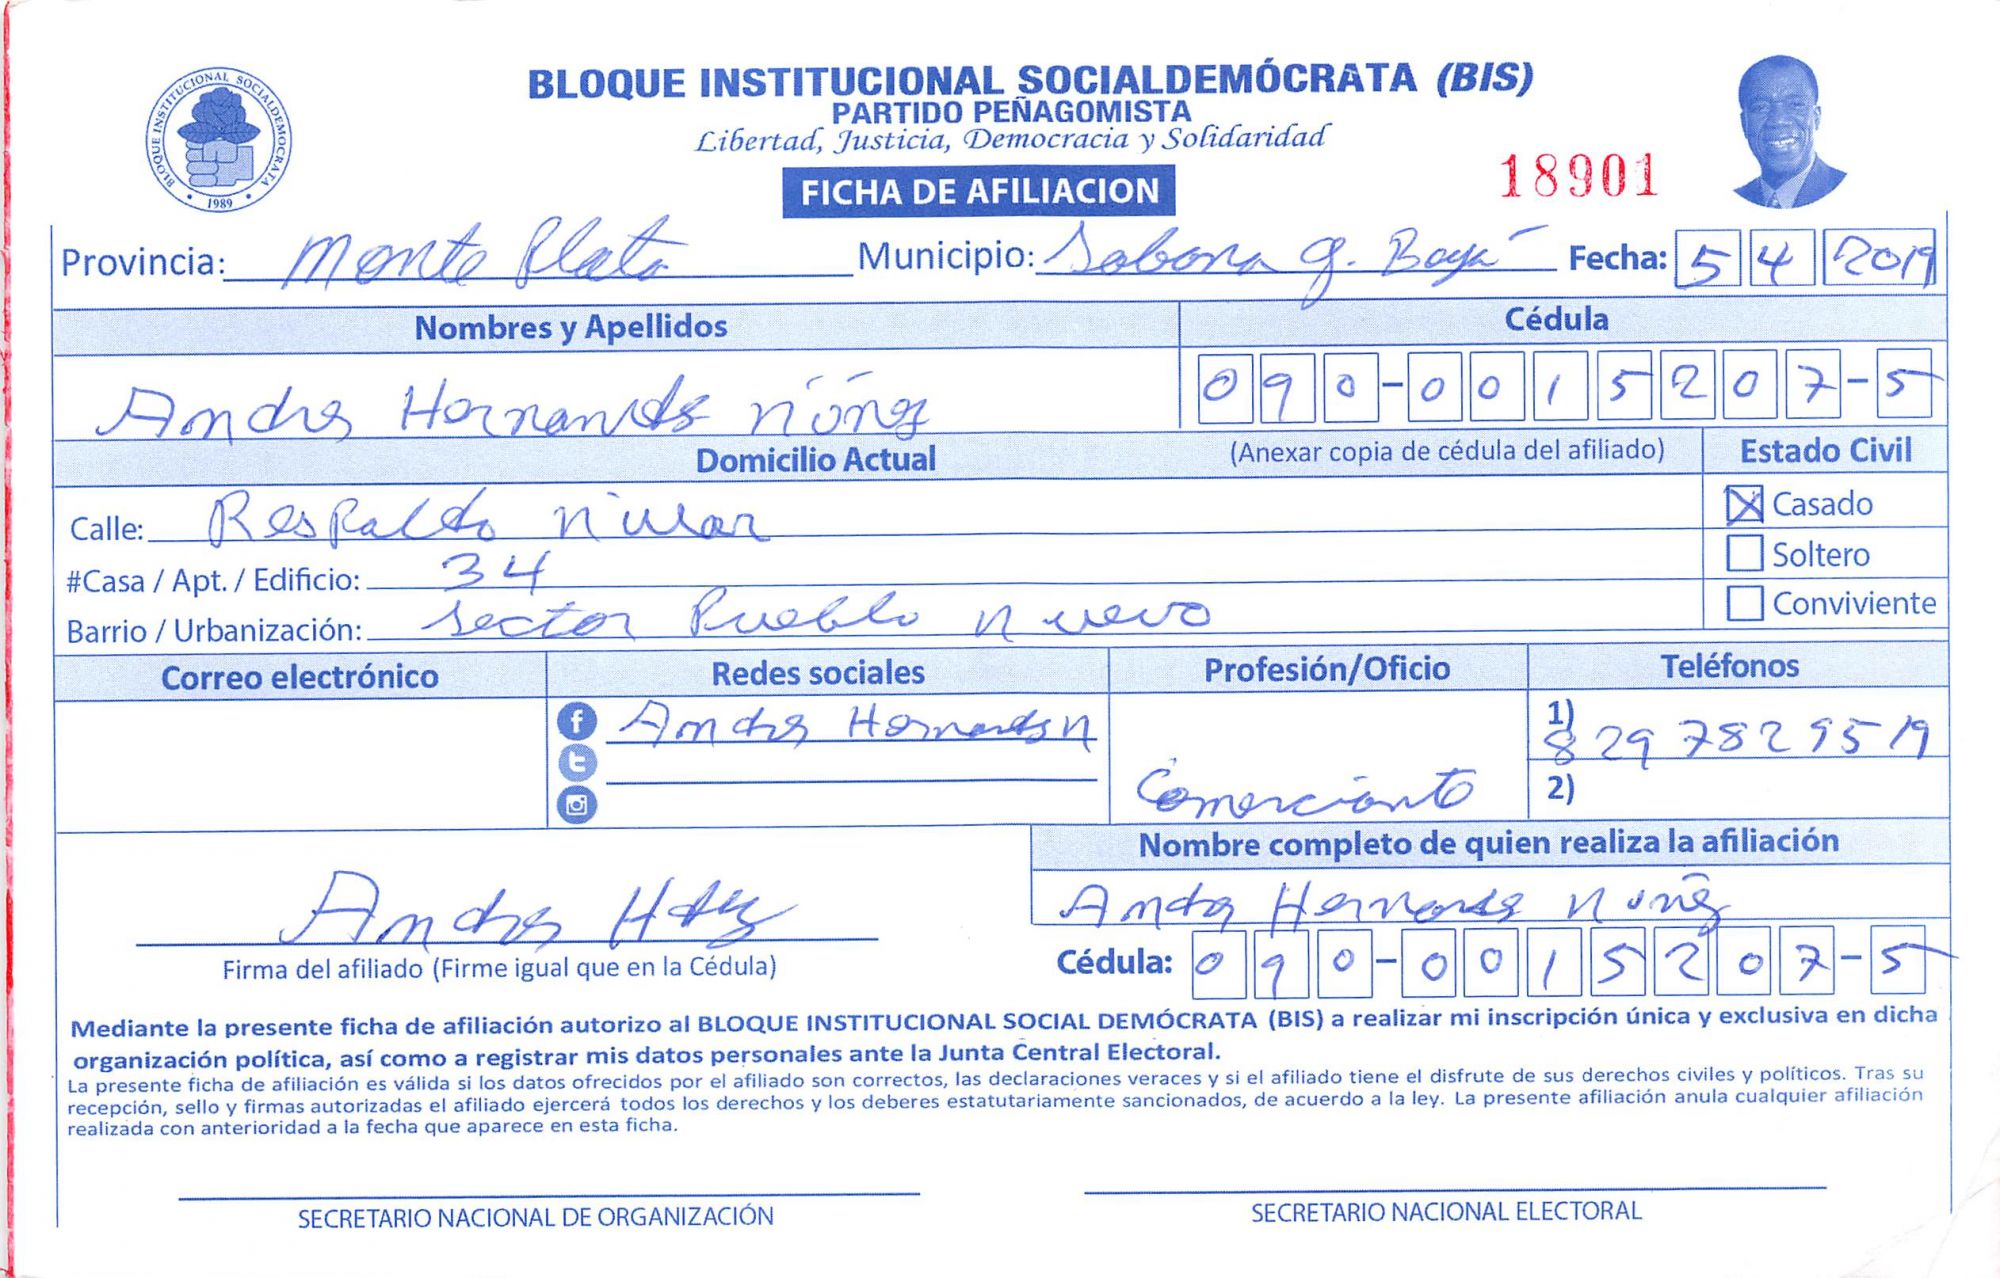 BLOQUE INSTITUCIONAL SOCIALDEMÓCRATA (BIS)
PARTIDO PEÑAGOMISTA
Libertad, Justicia, Democracia y Solidaridad
BLOQUE INSTITUCIONAL SOCIALDEMOCRATA
1989
FICHA DE AFILIACION
18901
Provincia: Monte Plata Municipio: Sabana g. Boyá Fecha: 5 4 2019
Nombres y Apellidos Cédula
Andres Hernandes Núñez 090-0015207-5
Domicilio Actual (Anexar copia de cédula del afiliado) Estado Civil
Calle: Respaldo Casado
#Casa / Apt. / Edificio: 34 Soltero
Barrio / Urbanización: Sector Pueblo Nuevo Conviviente
Correo electrónico Redes sociales Profesión/Oficio Teléfonos
Andres Hernandes N Comerciante 1) 829 782 9519
2)
Nombre completo de quien realiza la afiliación
Andres Hernandes Nuñez
Andres Hdez
Firma del afiliado (Firme igual que en la Cédula) Cédula: 090-0015207-5
Mediante la presente ficha de afiliación autorizo al BLOQUE INSTITUCIONAL SOCIAL DEMÓCRATA (BIS) a realizar mi inscripción única y exclusiva en dicha
organización política, así como a registrar mis datos personales ante la Junta Central Electoral.
La presente ficha de afiliación es válida si los datos ofrecidos por el afiliado son correctos, las declaraciones veraces y si el afiliado tiene el disfrute de sus derechos civiles y políticos. Tras su
recepción, sello y firmas autorizadas el afiliado ejercerá todos los derechos y los deberes estatutariamente sancionados, de acuerdo a la ley. La presente afiliación anula cualquier afiliación
realizada con anterioridad a la fecha que aparece en esta ficha.
SECRETARIO NACIONAL DE ORGANIZACIÓN SECRETARIO NACIONAL ELECTORAL